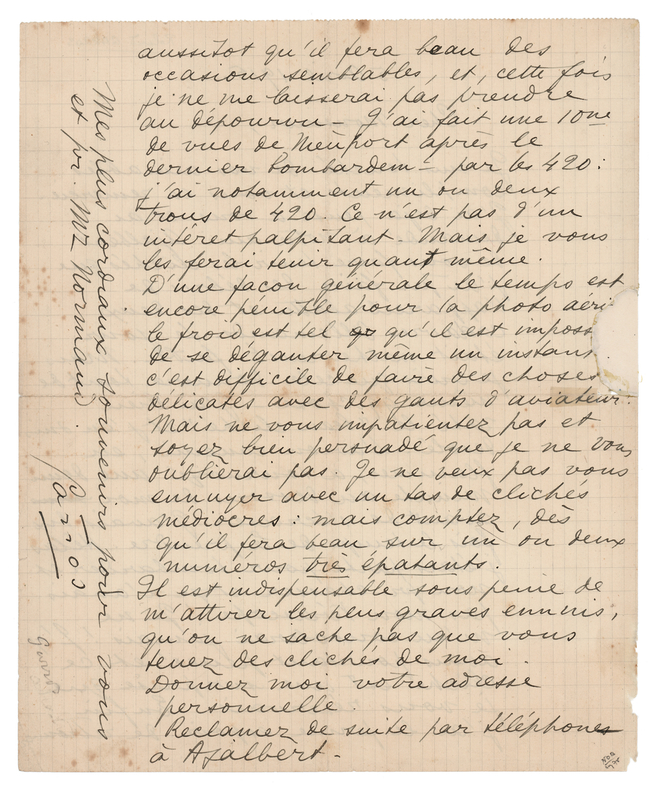 aussitot qu'il fera beau des
occasions semblables, et, cette fois
je ne me laisserai pas prendre
au dépourvu - J'ai fait une 10ne
de vues de Nieuport après le
dernier bombardem- par les 420 :
j'ai notamment un ou deux
trous de 420. Ce n'est pas d'un
intéret palpitant. Mais je vous
les ferai tenir quant même.
D'une façon générale le temps est
encore pénible pour la photo aéri
le froid est tel qu'il est imposs
de se déganter même un instant.
c'est difficile de faire des choses
délicates avec des gants d'aviateur.
Mais ne vous impatientez pas et
soyez bien persuadé que je ne vous
oublierai pas. Je ne veux pas vous
ennuyer avec un tas de clichés
médiocres : mais comptez, dès
qu'il fera beau sur un ou deux
numéros très épatants.
Il est indispensable sous peine de
m'attirer les plus graves ennuis,
qu'on ne sache pas que vous
tenez des clichés de moi.
Donnez moi votre adresse
personnelle.
Reclamez de suite par téléphone
à Ajalbert.
Mes plus cordiaux souvenirs pour vous
et pr. Mz Normand.